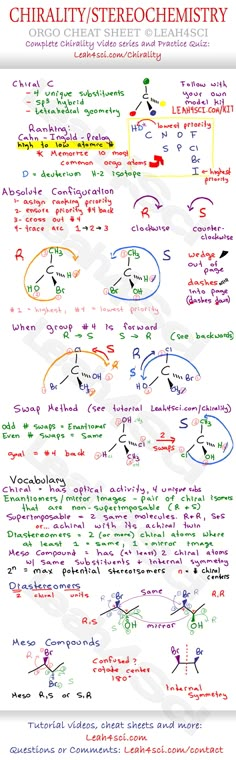 CHIRALITY/STEREOCHEMISTRY
ORGO CHEAT SHEET ©LEAH4SCI
Complete Chirality Video series and Practice Quiz:
Leah4sci.com/Chirality
Chiral C
- 4 unique substituents
- sp³ hybrid
- tetrahedral geometry
Follow with
your own
model kit
LEAH4SCI.com/KIT
Ranking:
Cahn - Ingold - Prelog
high to low atomic #
* Memorize 10 most
common orgo atoms
D = deuterium H-2 isotope
lowest priority
H
C N O F
S P Cl
Br
I
highest
priority
Absolute Configuration
1- assign ranking priority
2- ensure priority #4 back
3- cross out #4
4- trace arc 1→2→3
R
clockwise
S
counter-
clockwise
wedge
out of
page
dashes
into
page
(dashes down)
#1 = highest, #4 = lowest priority
When group #4 is forward
R → S S → R (see backwards)
Swap Method (see tutorial Leah4sci.com/chirality)
odd # swaps = Enantiomer
Even # swaps = Same
goal = #4 back
2
swaps
Vocabulary
Chiral = has optical activity, 4 unique subs
Enantiomers/mirror images - pair of chiral isomers
that are non-superimposable (R + S)
Superimposable = 2 same molecules. R+R, S+S
or... achiral with its achiral twin
Diastereomers = 2 (or more) chiral atoms where
at least 1 = same, 1 = mirror image
Meso Compound = has (at least) 2 chiral atoms
w/ same substituents + internal symmetry
2ⁿ = max potential stereoisomers n = # chiral
centers
Diastereomers
2 chiral units
same
mirror
Meso Compounds
Confused?
rotate center
180°
Internal
Symmetry
Meso R,S or S,R
Tutorial videos, cheat sheets and more:
Leah4sci.com
Questions or Comments: Leah4sci.com/contact